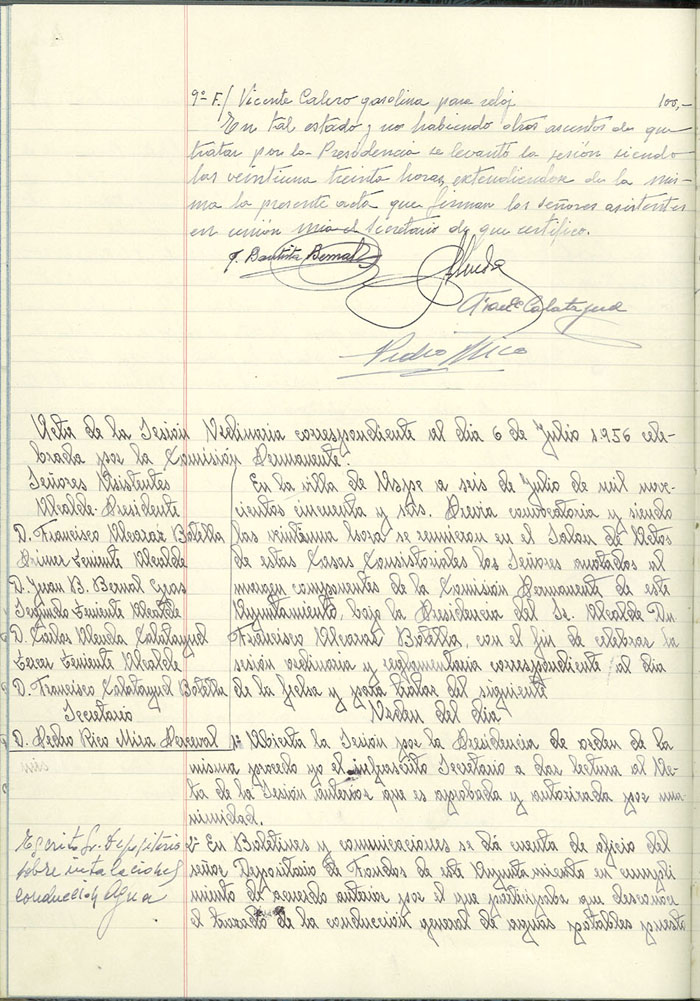 9º F./ Vicente Calero gasolina para reloj 100,-
En tal estado y no habiendo otros asuntos de que
tratar por la Presidencia se levantó la sesión siendo
las veintiuna treinta horas, extendiendose de la mis-
ma la presente acta que firman los señores asistentes
en unión mia el Secretario de que certifico.
J. Bautista Bernal
Alenda
Franco Calatayud
Pedro Rico
Acta de la Sesión Ordinaria correspondiente al dia 6 de Julio 1956 cele-
brada por la Comisión Permanente.
Señores Asistentes
Alcalde-Presidente
D. Francisco Alcaraz Botella
Primer Teniente Alcalde
D. Juan B. Bernal
Segundo Teniente Alcalde
D. Carlos Alenda Calatayud
Tercer Teniente Alcalde
D. Francisco Calatayud Botella
Secretario
D. Pedro Rico Mira Perceval
En la villa de Aspe a seis de Julio de mil nove-
cientos cincuenta y seis. Previa convocatoria y siendo
las veintiuna horas se reunieron en el Salon de Actos
de estas Casas Consistoriales los Señores anotados al
margen componentes de la Comisión Permanente de este
Ayuntamiento, bajo la Presidencia del Sr. Alcalde Dn.
Francisco Alcaraz Botella, con el fin de celebrar la
sesión ordinaria y reglamentaria correspondiente al dia
de la fecha y para tratar del siguiente
Orden del dia
1º Abierta la Sesión por la Presidencia de orden de la
misma procedo yo el infrascrito Secretario a dar lectura al Ac-
ta de la Sesión anterior que es aprobada y autorizada por una-
nimidad.
Escrito Sr. Depositario
sobre instalaciones
conducción Agua
2º En Boletines y comunicaciones se dá cuenta de oficio del
señor Depositario de Fondos de este Ayuntamiento en cumpli-
miento de acuerdo anterior por el que participaba que desconoce
el trazado de la conducción general de aguas potables puesto